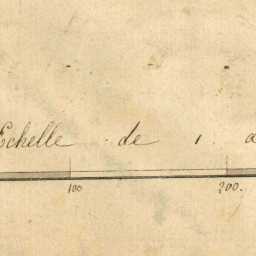 Echelle de 1 a
100 200.